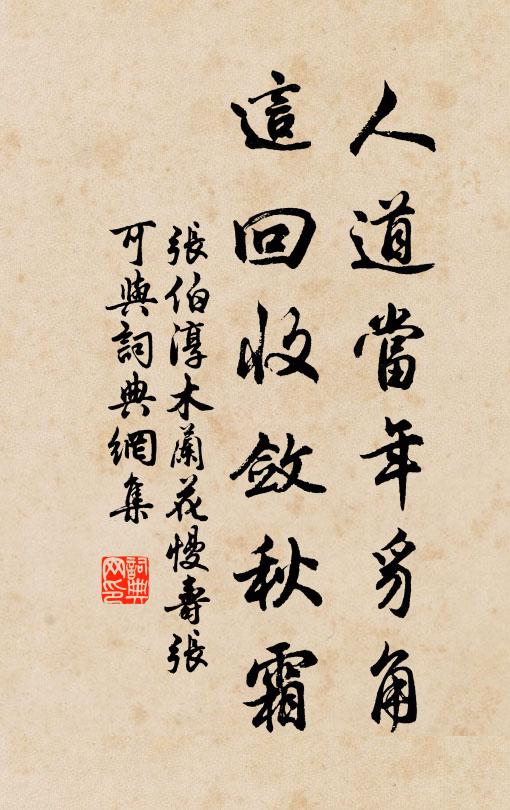 人道當年豸角
這回收斂秋霜
張伯淳木蘭花慢壽張
可與詞典網集
詞典網印